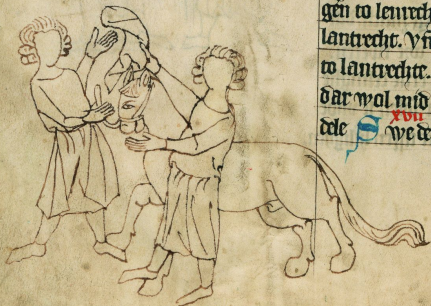 gen to lenrech
lantrecht. Vn
to lantrechte.
dar wol mid
xvii
dele S we de